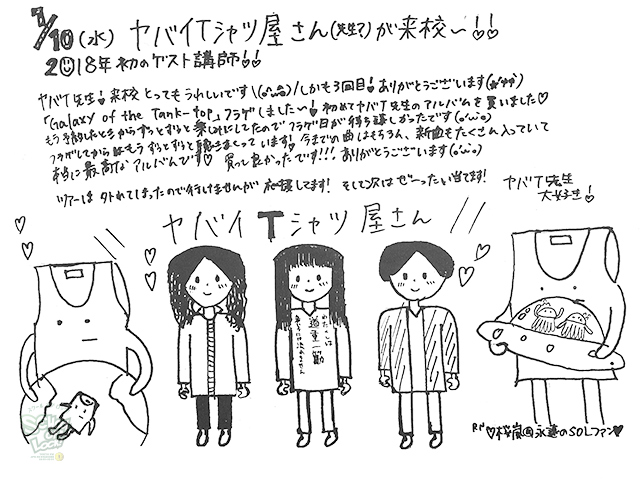 1/10(水) ヤバイTシャツ屋さん(先生?)が来校〜!!
2018年初のゲスト講師!!
ヤバT先生!来校とってもうれしいです\(o'ω'o)/しかも3回目!ありがとうございます
「Galaxy of the Tank-top」フラゲしました〜!初めてヤバT先生のアルバムを買いました♡
もう予約したときからずっとずっと楽しみにしてたのでフラゲ日が待ち遠しかったです(o'ω'o)
フラゲしてからはもうずっとずっと聴きまくっています!今までの曲はもちろん、新曲もたくさん入っていて
本当に最高なアルバムです♡ 買って良かったです!!!ありがとうございます(o'ω'o)
ツアーは外れてしまったので行けませんが応援してます! そして次はぜーったい当てます!
ヤバT先生
大好き!
ヤバイTシャツ屋さん
わたくしは
道重一筋
RN ♡桜嵐回永遠のSOLファン♥